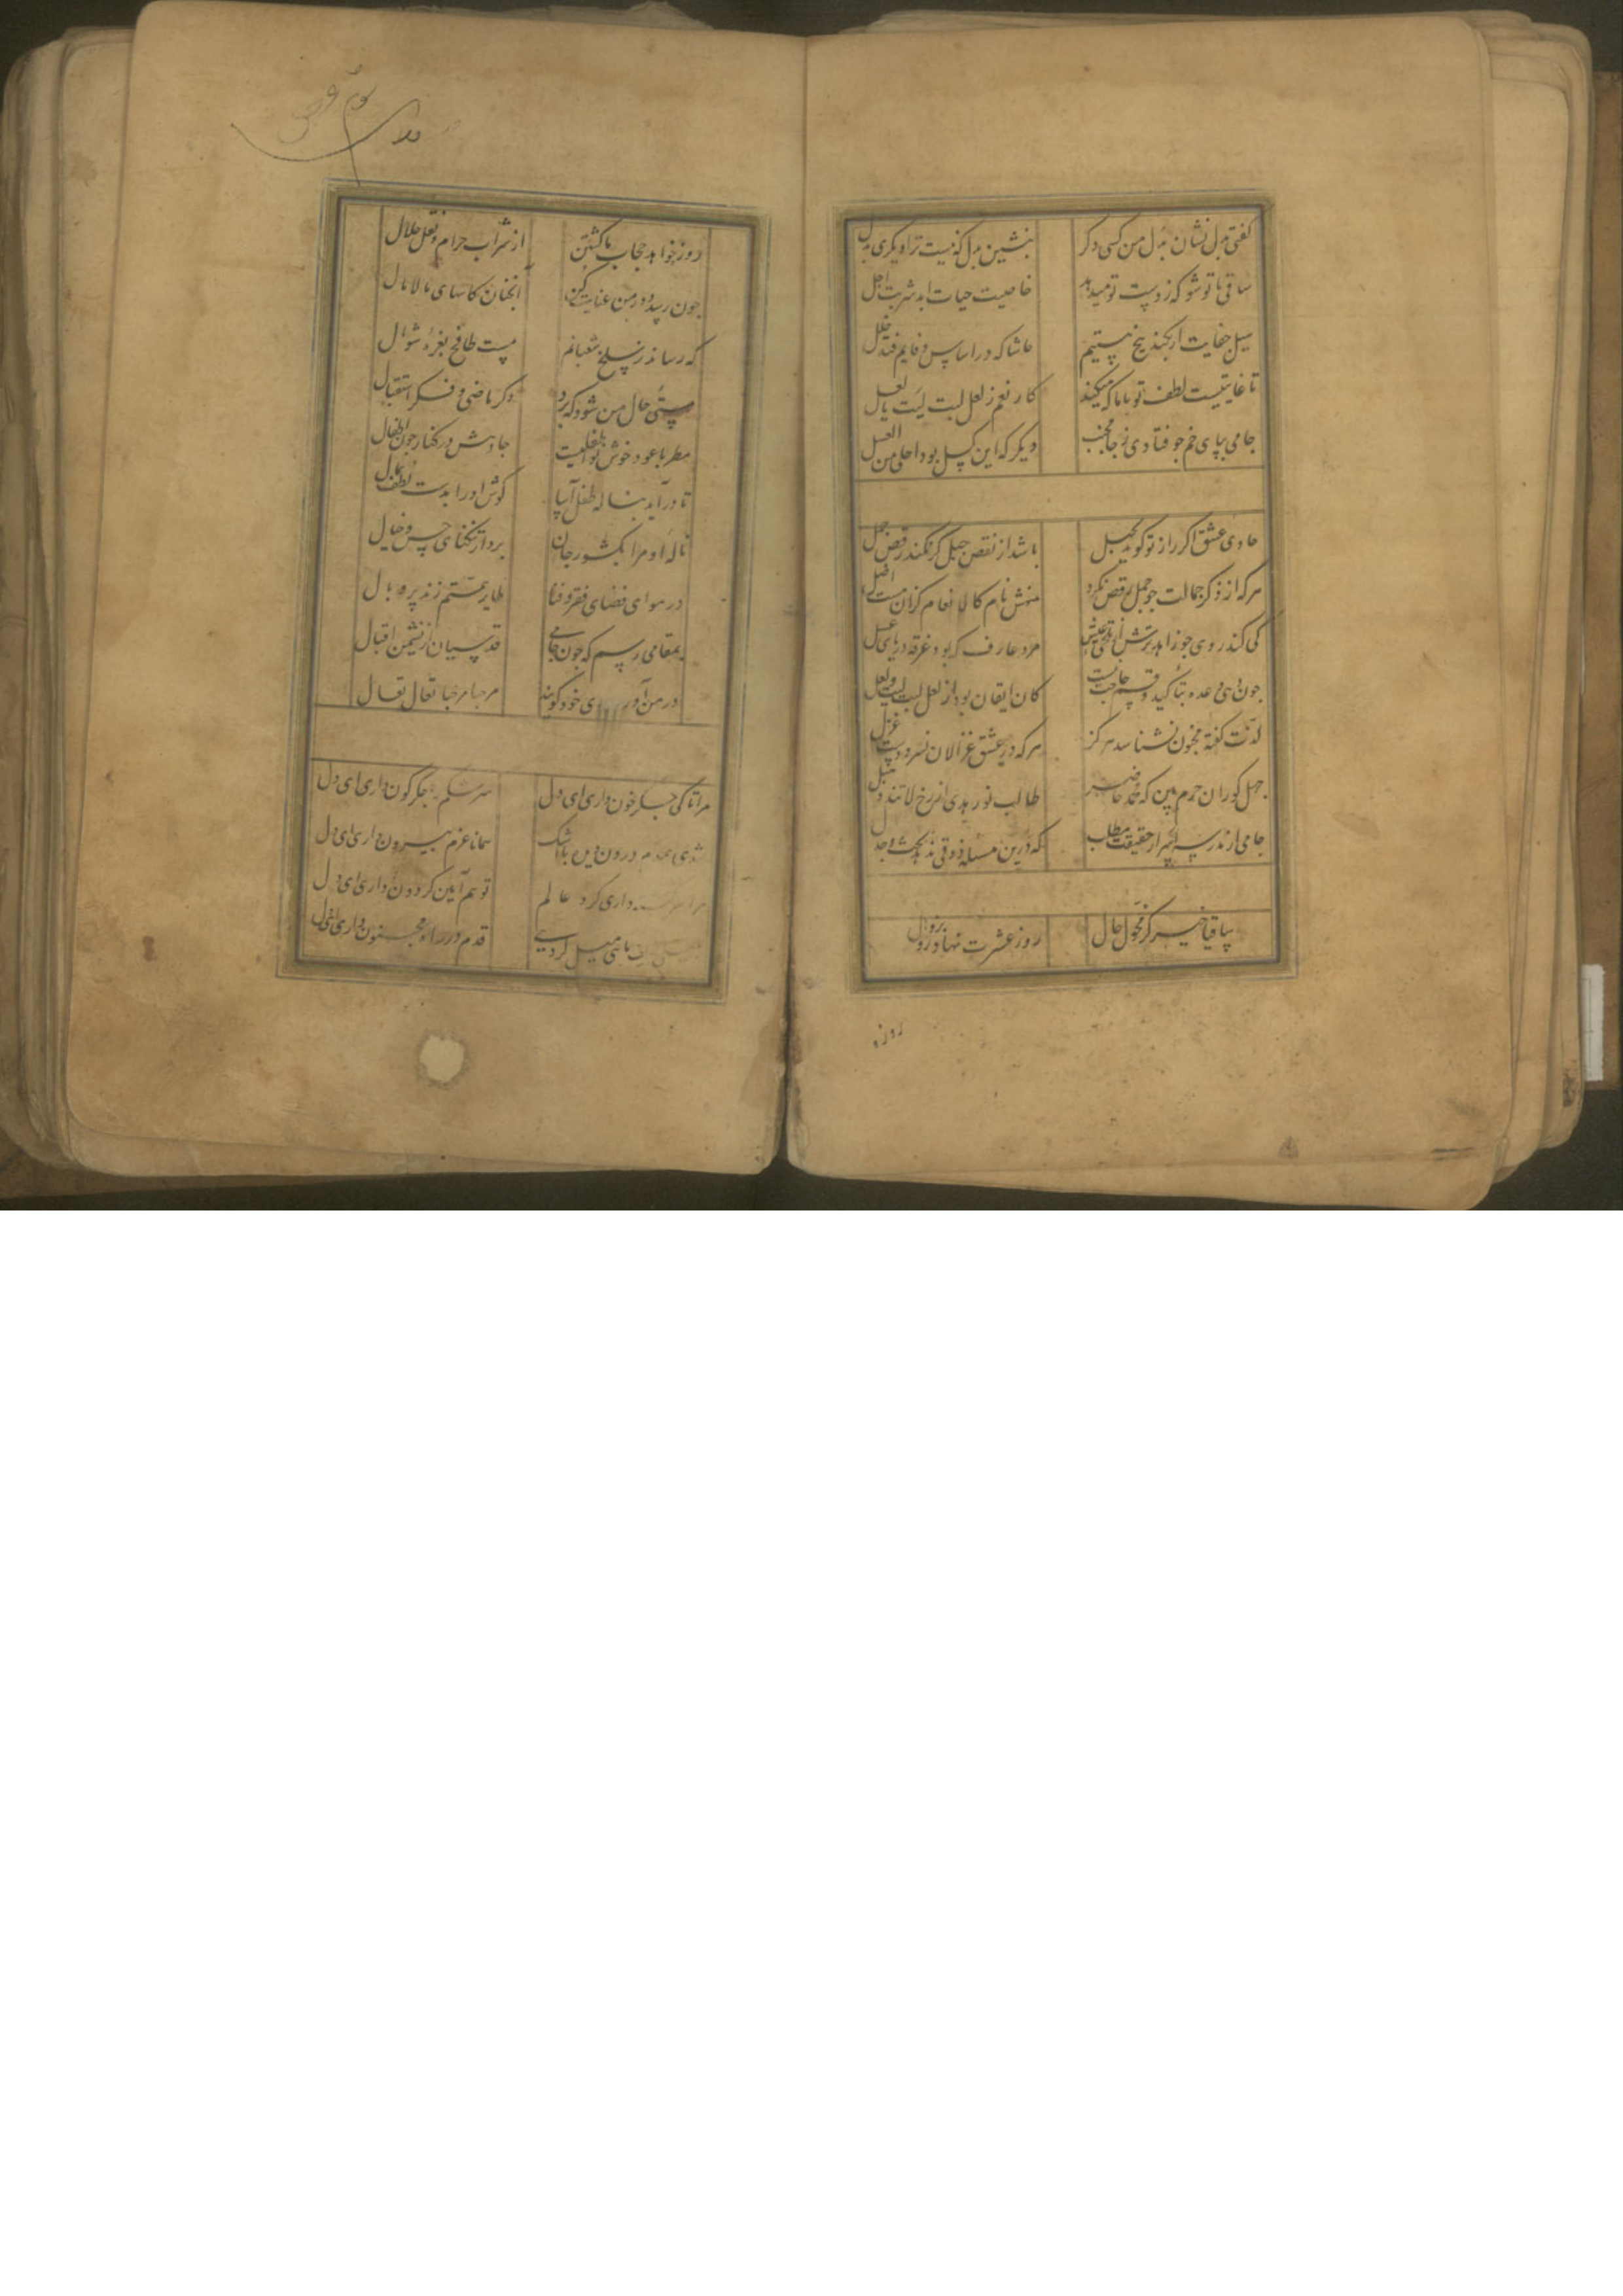 گفتی بدل نشان بدل من کسی دگر بنشین بدل که نیست ترا دیگری بدل
ساقی با تو شو که ز دست تو میدهد خاصیت حیات ابد شربت اجل
سیل جفایت ار بکند بیخ هستیم حاشا که در اساس وفایم فتد خلل
تا غایتیست لطف تو با ما که میکند کار نعم ز لعل لبت لیت یا لعل
جامی بپای خم چو فتادی ز جا مجنب دیگر که این کسل بود احلی من العسل
حادی عشق اگر راز تو گوید بجبل باشد از نقص جبل گر نکند رقص جمل
هرکه از ذکر جمالت چو جمل رقص نکرد منهش نام کالانعام کزان هست اضل
کی کند روی چو زاهد ترش از تلخی عیش مرد عارف که بود غرقه دریای عسل
چون دهی وعده بتأکید و قسم حاجت نیست کان ایقان بود از لعل لبت لیت و لعل
لذت گفته مجنون نشناسد هرگز هرکه در عشق غزالان نسرودست غزل
جهل کوران حرم بین که محمد حاضر طالب نور هدی از رخ لاتند و هبل
جامی از مدرسه اسرار حقیقت مطلب که درین مسئله ذوقی ندهد بحث و جدل
ساقیا خیز کز محول حال روز عشرت نهاد رو بزوال
روزه
روزه خواهد حجاب ما گشتن از شراب حرام و نقل حلال
چون رسد دور من عنایت کن آنچنان کاسهای مالامال
که رساند ز سلخ شعبانم مست طافح بغره شوال
مستی حال من شود که برد ذکر ماضی و فکر استقبال
مطربا عود خوش نوا طفلیست جا دهش در کنار چون اطفال
تا درآید بناله طفل آسا گوش او را بدست لطف بمال
ناله او مرا بکشور جان برد از تنگنای حس و خیال
در هوای فضای فقر و فنا طایر همتم زند پر و بال
بمقامی رسم که چون جامی قدسیان از نشیمن اقبال
در من آور ی خود گویند مرحبا مرحبا تعال تعال
مرا تا کی جگر خون داری ای دل سرشکم جگرگون داری ای دل
شدی درون دیده با اشک همانا عزم بیرون داری ای دل
داری گرد عالم تو هم آیین گردون داری ای دل
بلیلی میل کردی قدم در راه مجنون داری ای دل